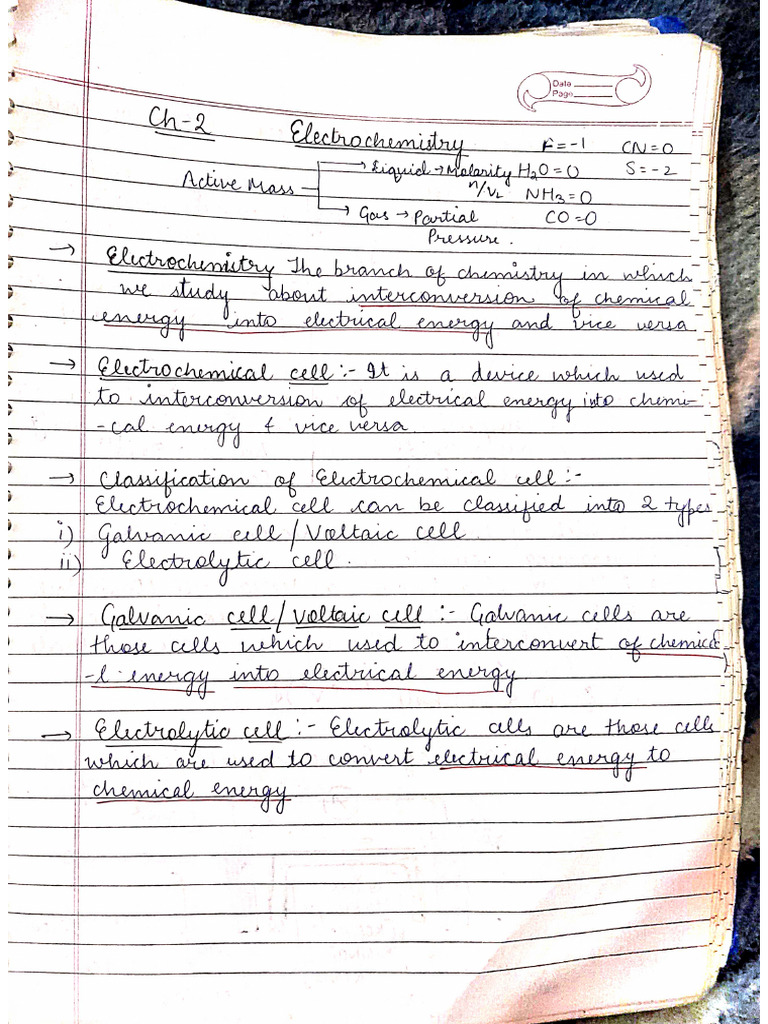 Date
Page
Ch-2 Electrochemistry F=-1 CN=0
Active Mass → Liquid → Molarity H2O=0 S=-2
n/VL NH3=0
→ Gas → Partial CO=0
Pressure.
→ Electrochemistry The branch of chemistry in which
we study about interconversion of chemical
energy into electrical energy and vice versa
→ Electrochemical cell :- It is a device which used
to interconversion of electrical energy into chemi-
-cal energy & vice versa
→ Classification of Electrochemical cell :-
Electrochemical cell can be classified into 2 types
i) Galvanic cell / Voltaic cell
ii) Electrolytic cell.
→ Galvanic cell / Voltaic cell :- Galvanic cells are
those cells which used to interconvert of chemica
-l energy into electrical energy
→ Electrolytic cell :- Electrolytic cells are those cells
which are used to convert electrical energy to
chemical energy